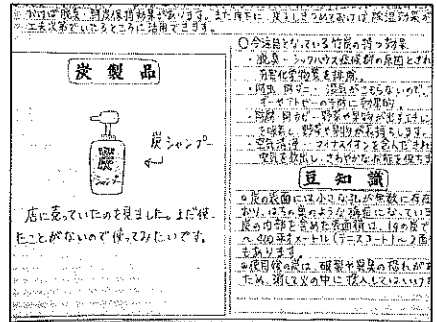 おけば脱臭、鮮度保持効果があります。また床下に炭をしきつめておけば除湿効果が
工夫次第でいろところに活用できます。
炭製品
炭シャンプー
炭
シャンプー
店に売っていたのを見ました。まだ使っ
たことがないので使ってみたいです。
○今注目となっている竹炭の持つ効果
・脱臭・シックハウス症候群の原因とされ
有害化学物質を排除。
・防虫、防ダニ・湿気がこもらないので、
ダニやアトピーの予防に効果的。
・防腐、防カビ・野菜や果物が出すエチレン
を吸着し、野菜や果物が長持ちします。
・空気清浄・マイナスイオンを含んだきれいな
空気を放出し、さわやかな状態を保ちます
豆知識
◎炭の表面には小さな孔が無数に存在
おり、はちの巣のような構造になっています
炭の内部を含めた表面積は、1gの炭で
～400平方メートル(テニスコート1～2面
もあります
◎使用後の炭は、破裂や異臭の恐れがあ
ため、消して火の中に投入してはいけま